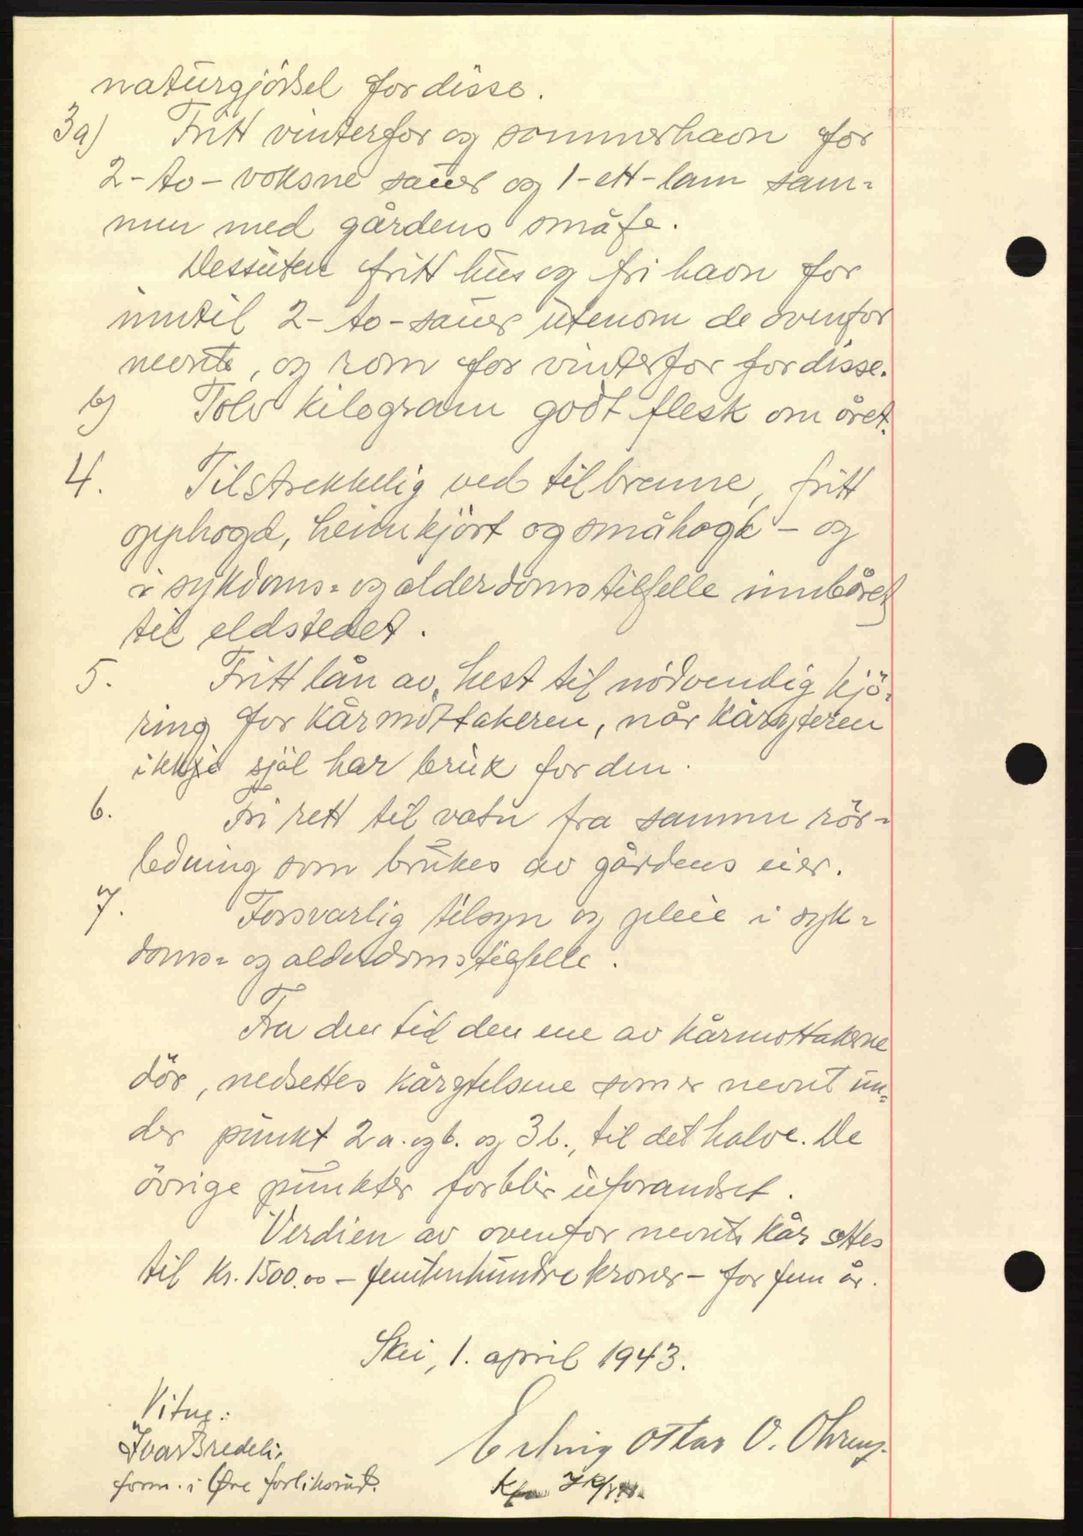 naturgjödsel for disse.
3a) Fritt vinterfor og sommerhavn for
2-to-voksne sauer og 1-ett-lam sam-
men med gårdens småfe.
Dessuten fritt hus og fri havn for
inntil 2-to-sauer utenom de ovenfor
nevnte, og rom for vinterfor for disse.
b) Tolv kilogram godt flesk om året.
4. Tilstrekkelig ved til brenne, fritt
opphogd, heimkjört og småhogd - og
i sykdoms- og alderdomstilfelle innbåret
til eldstedet.
5. Fritt lån av hest til nödvendig kjö-
ring for kårmottakeren, når kårgiveren
ikkje sjöl har bruk for den.
6. Fri rett til vatn fra samme rör-
ledning som brukes av gårdens eier.
7. Forsvarlig tilsyn og pleie i syk-
doms- og alderdomstilfelle.
Fra den tid den ene av kårmottakerne
dör, nedsettes kårytelsene som er nevnt un-
der punkt 2a. og b. og 3b., til det halve. De
övrige punkter forblir uforandret.
Verdien av ovenfor nevnte kår settes
til kr. 1500.00 - femtenhundre kroner - for fem år.
Skei, 1. april 1943.
Vitne:
Ivar Bredeli,
form. i Øre forliksråd.
Erling Ottar O. Ohren